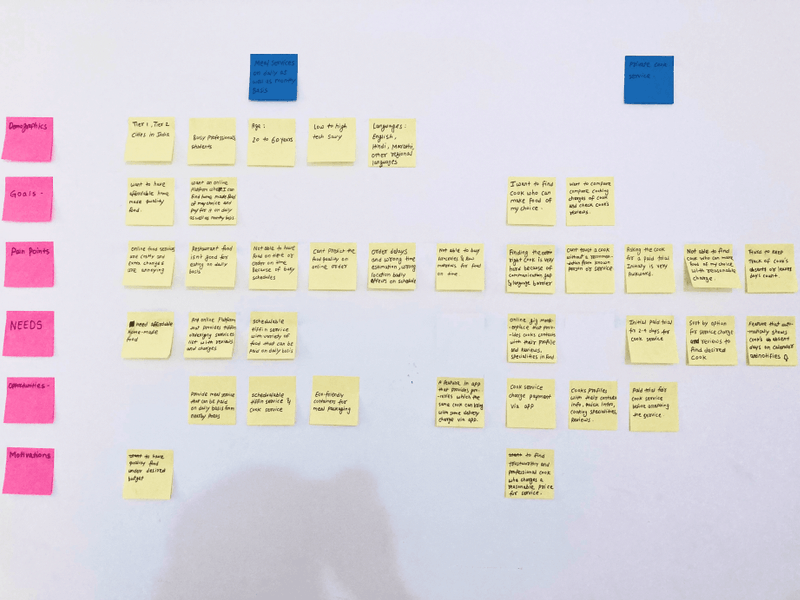 Meal services
on daily as
well as monthly
basis
Private cook
service
Demographics
Tier 1, Tier 2
cities in India
Busy Professionals
students
Age:
20 to 60 years
Low to high
tech savy
Languages:
English,
Hindi, Marathi,
other regional
languages
Goals -
Want to have
affordable home
made quality
food.
Want an online
platform where I can
find home made food
of my choice and
pay for it on daily
as well as monthly basis
I want to find
cook who can
make food of
my choice.
want to compare
compare cooking
charges of cook
and check cook's
reviews.
Pain Points
online food services
are costly and
extra charges are
annoying
Restaurant food
isn't good for
eating on daily
basis
Not able to have
food on time or
order on time
because of busy
schedules
Can't predict the
food quality on
online order
order delays
and wrong time
estimation, wrong
location badly
effects on schedule
Not able to buy
groceries & raw
materials for food
on time
Finding the
right cook is very
hard because of
communication gap
& language barrier
Can't trust a cook
without a recomm-
endation from known
person or service
Asking the cook
for a paid trial
initially is very
awkward.
Not able to find
cook who can make
food of my choice
with reasonable
charge
track of cook's
absent or leaves
days count.
NEEDS
need affordable
home-made
food
Any online platform
that provides tiffin
services
with reviews
and charges
schedulable
tiffin service
with variety of
food that can be
paid on daily basis
online
place that
cooks contacts
with their profile
and reviews,
specialities in food
Initial paid trial
for 2-4 days for
cook service
Sort by option
for service charge
and reviews to
find desired
cook
Feature that auto-
matically shows
cook's absent
days on calendar
& notifies
Opportunities -
Provide meal service
that can be paid
on daily basis from
nearby
schedulable
tiffin service &
cook service
Eco-friendly
containers for
meal packaging
A feature in app
that provides gro-
ceries which the
same cook can bring
with some delivery
charge via app.
Cook service
charge payment
via app
Cooks profiles
with their contact
info, basic info,
cooking specialities,
reviews.
Paid trial for
cook service
before adapting
the service
Motivations
to have
quality food
under desired
budget
to find
trustworthy and
professional cook
who charges a
reasonable price
for service.